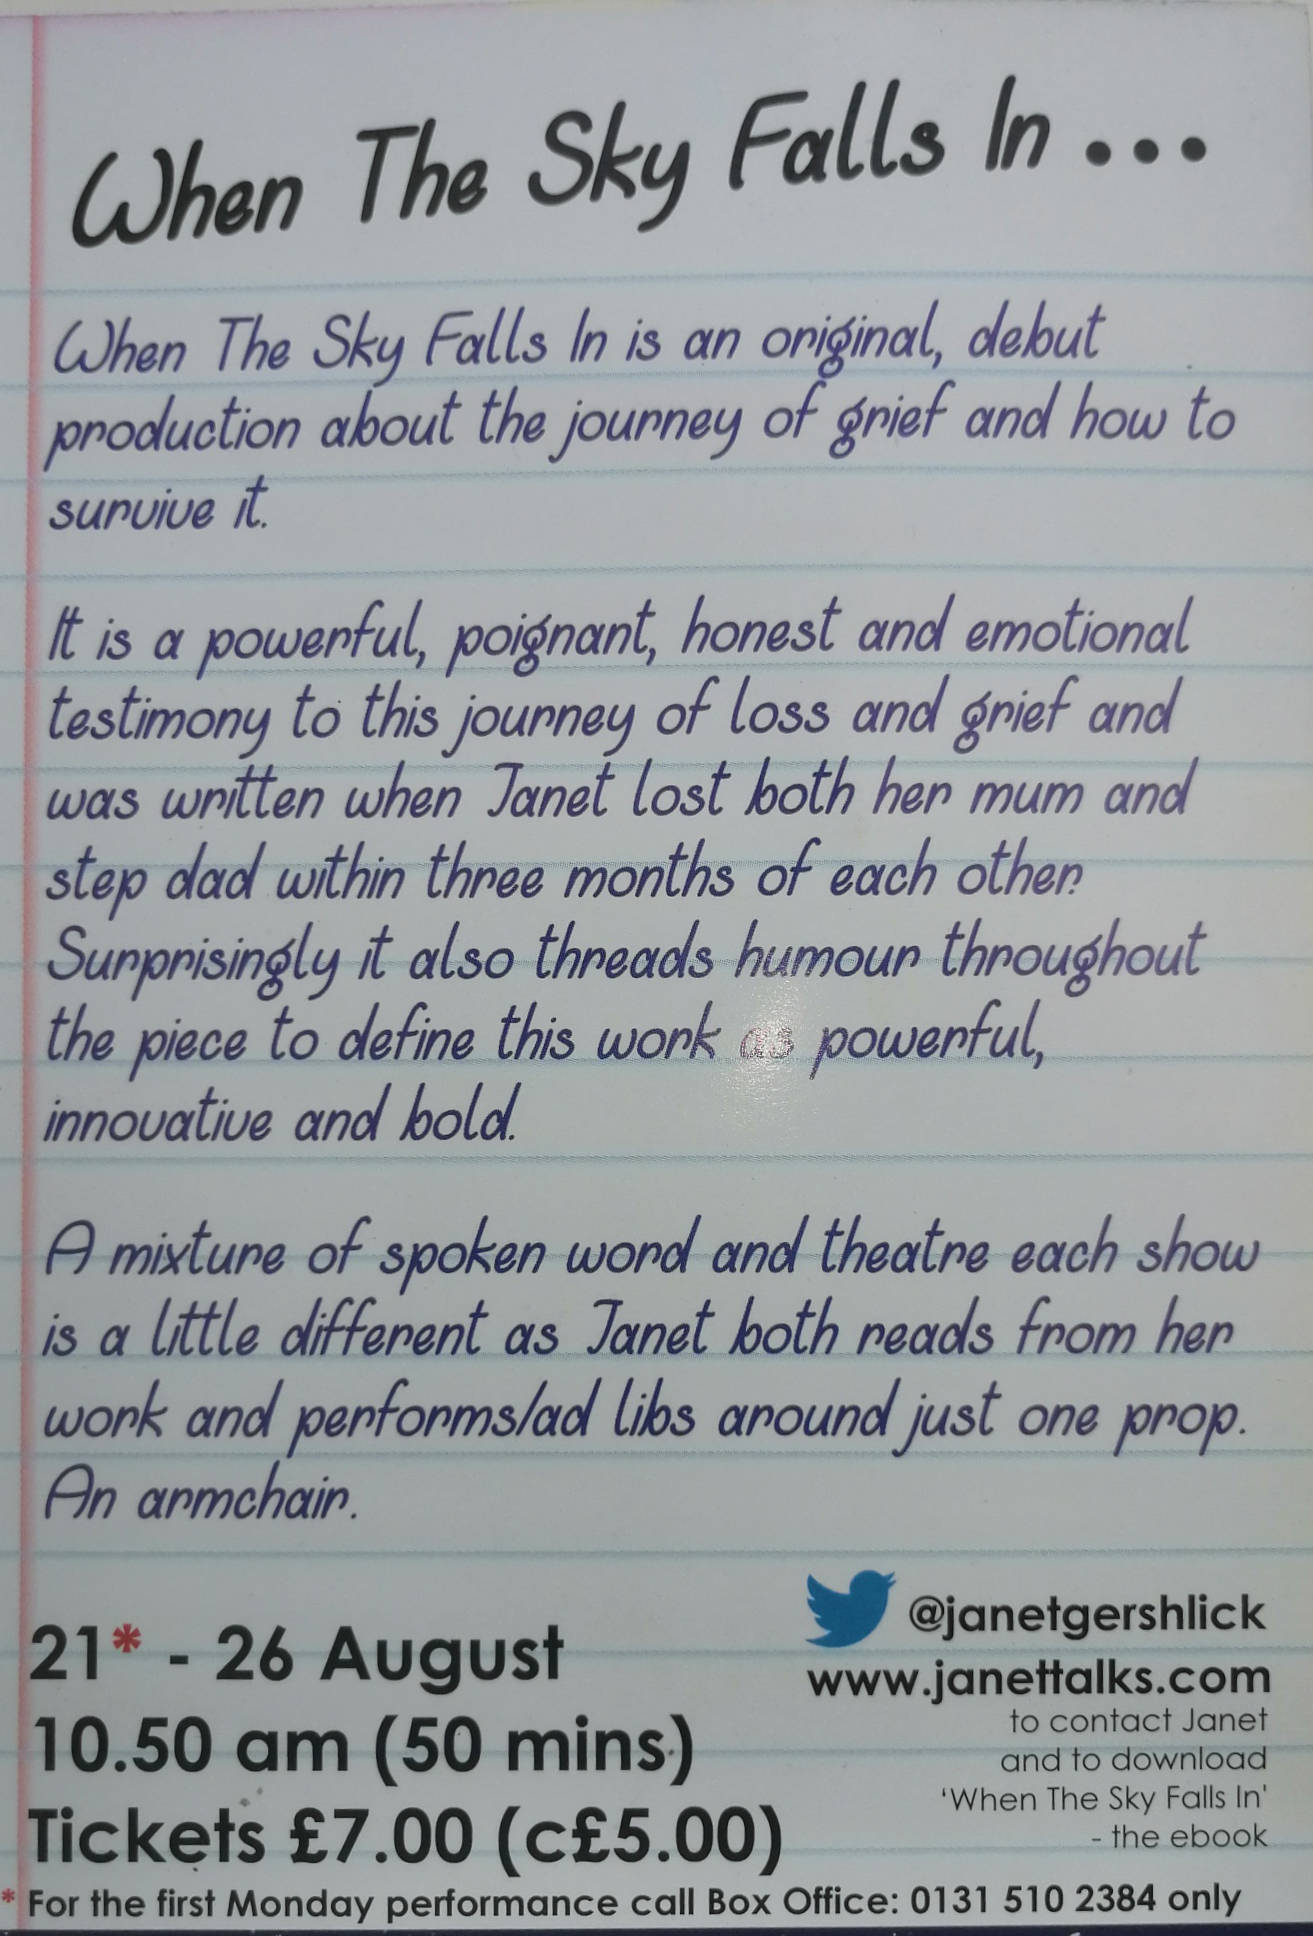 When The Sky Falls In ...
When The Sky Falls In is an original, debut
production about the journey of grief and how to
survive it.
It is a powerful, poignant, honest and emotional
testimony to this journey of loss and grief and
was written when Janet lost both her mum and
step dad within three months of each other.
Surprisingly it also threads humour throughout
the piece to define this work as powerful,
innovative and bold.
A mixture of spoken word and theatre each show
is a little different as Janet both reads from her
work and performs/ad libs around just one prop.
An armchair.
21* - 26 August
10.50 am (50 mins)
Tickets £7.00 (c£5.00)
@janetgershlick
www.janettalks.com
to contact Janet
and to download
'When The Sky Falls In'
- the ebook
* For the first Monday performance call Box Office: 0131 510 2384 only